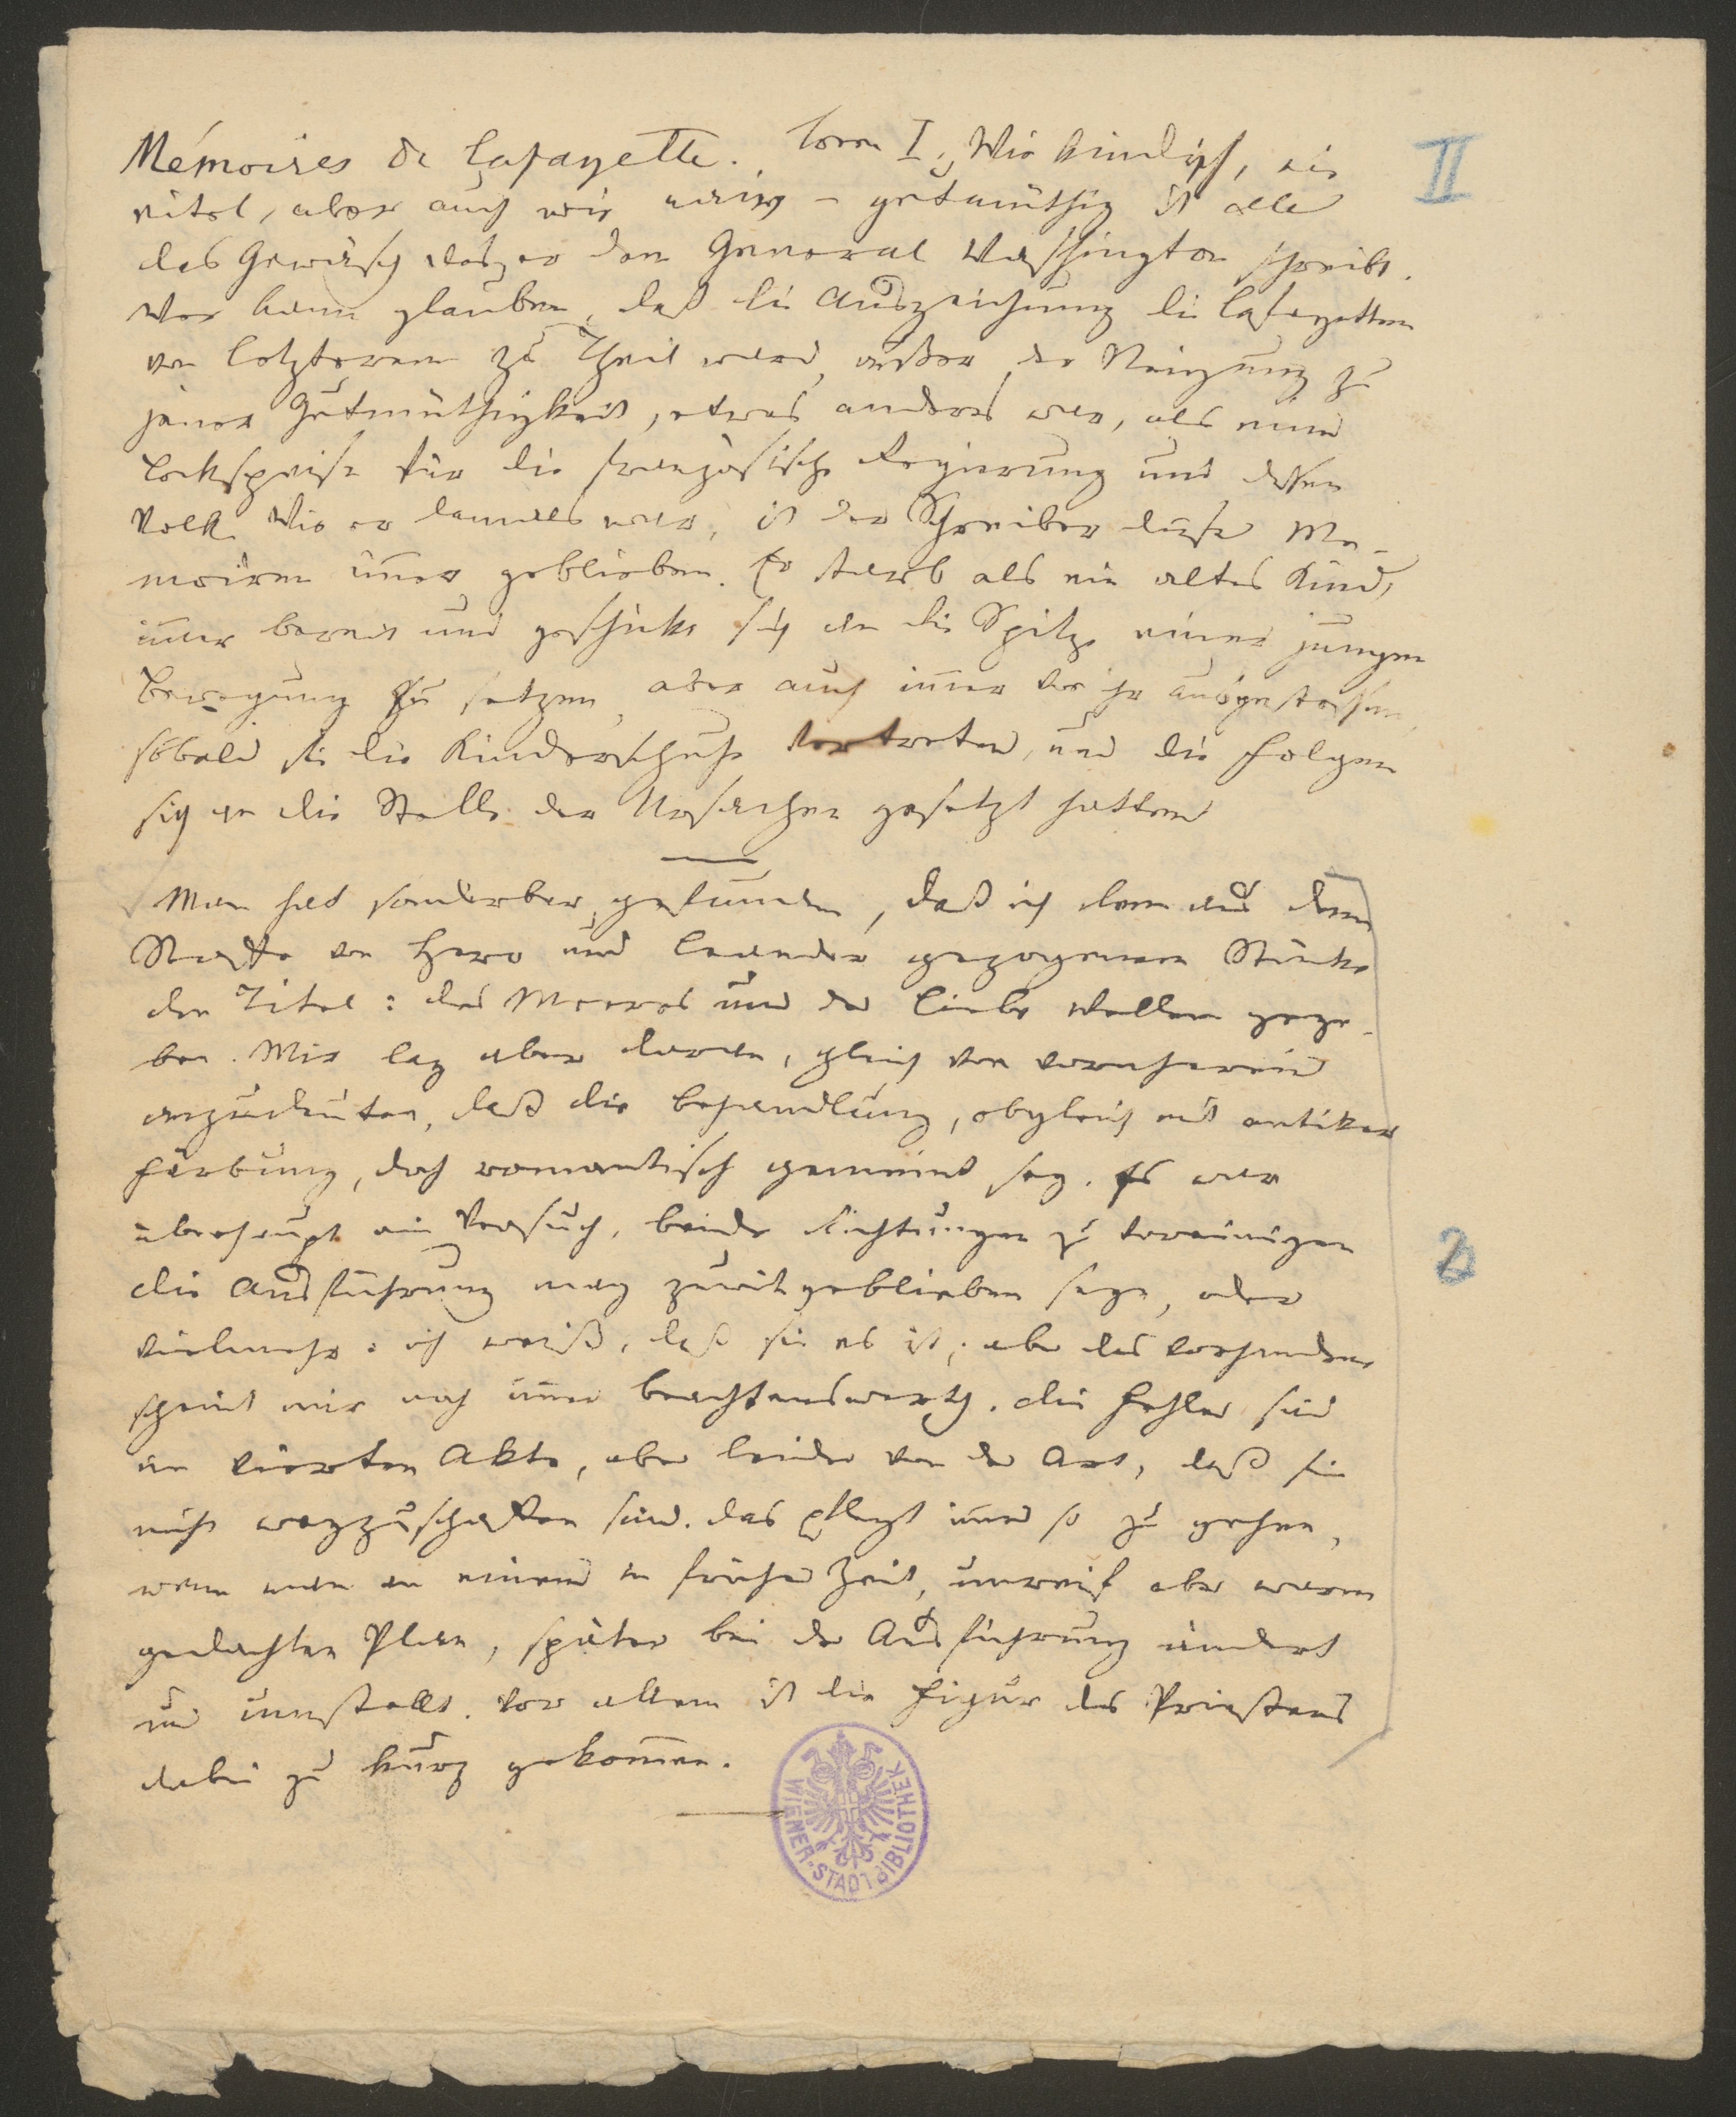 Mémoires de Lafayette. tom I. Wie kindisch, wie
eitel, aber auch wie naiv-gutmüthig ist alle
das Gewäsch das er dem General Washington schreibt.
Wer kann glauben, daß die Auszeichnung die Lafayetten
von letzterem zu Theil ward, außer der Neigung zu
jener Gutmüthigkeit, etwas anders war, als eine
Lockspeise für die französische Regierung und deßen
Volk. Wie er damals war, ist der Schreiber dieser Me-
moiren immer geblieben. Er starb als ein altes Kind,
immer bereit und geschickt sich an die Spitze einer jungen
Bewegung zu setzen, aber auch immer von ihr ausgestoßen,
sobald sie die Kinderschuhe vertreten, und die Folgen
sich an die Stelle der Ursachen gesetzt hatten
Man hat sonderbar gefunden, daß ich dem aus dem
Stoffe von Hero und Leander gezogenen Stücke
den Titel: des Meeres und der Liebe Wellen gege-
ben. Mir lag aber daran, gleich von vornherein
anzudeuten, daß die Behandlung, obgleich mit antiker
Färbung, doch romantisch gemeint sey. Es war
überhaupt ein Versuch, beide Richtungen zu vereinigen
die Ausführung mag zurückgeblieben seyn, oder
vielmehr: ich weiß, daß sie es ist; aber das Vorhandene
scheint mir noch immer beachtenswerth. Die Fehler sind
im vierten Akte, aber leider von der Art, daß sie
nicht wegzuschaffen sind. Das pflegt immer so zu gehen,
wenn man an einem in früher Zeit, unreif aber warm
gedachten Plan, später bei der Ausführung ändert
und umstellt. Vor allem ist die Figur des Priesters
dabei zu kurz gekommen.
II
2
WIENER·STADTBIBLIOTHEK